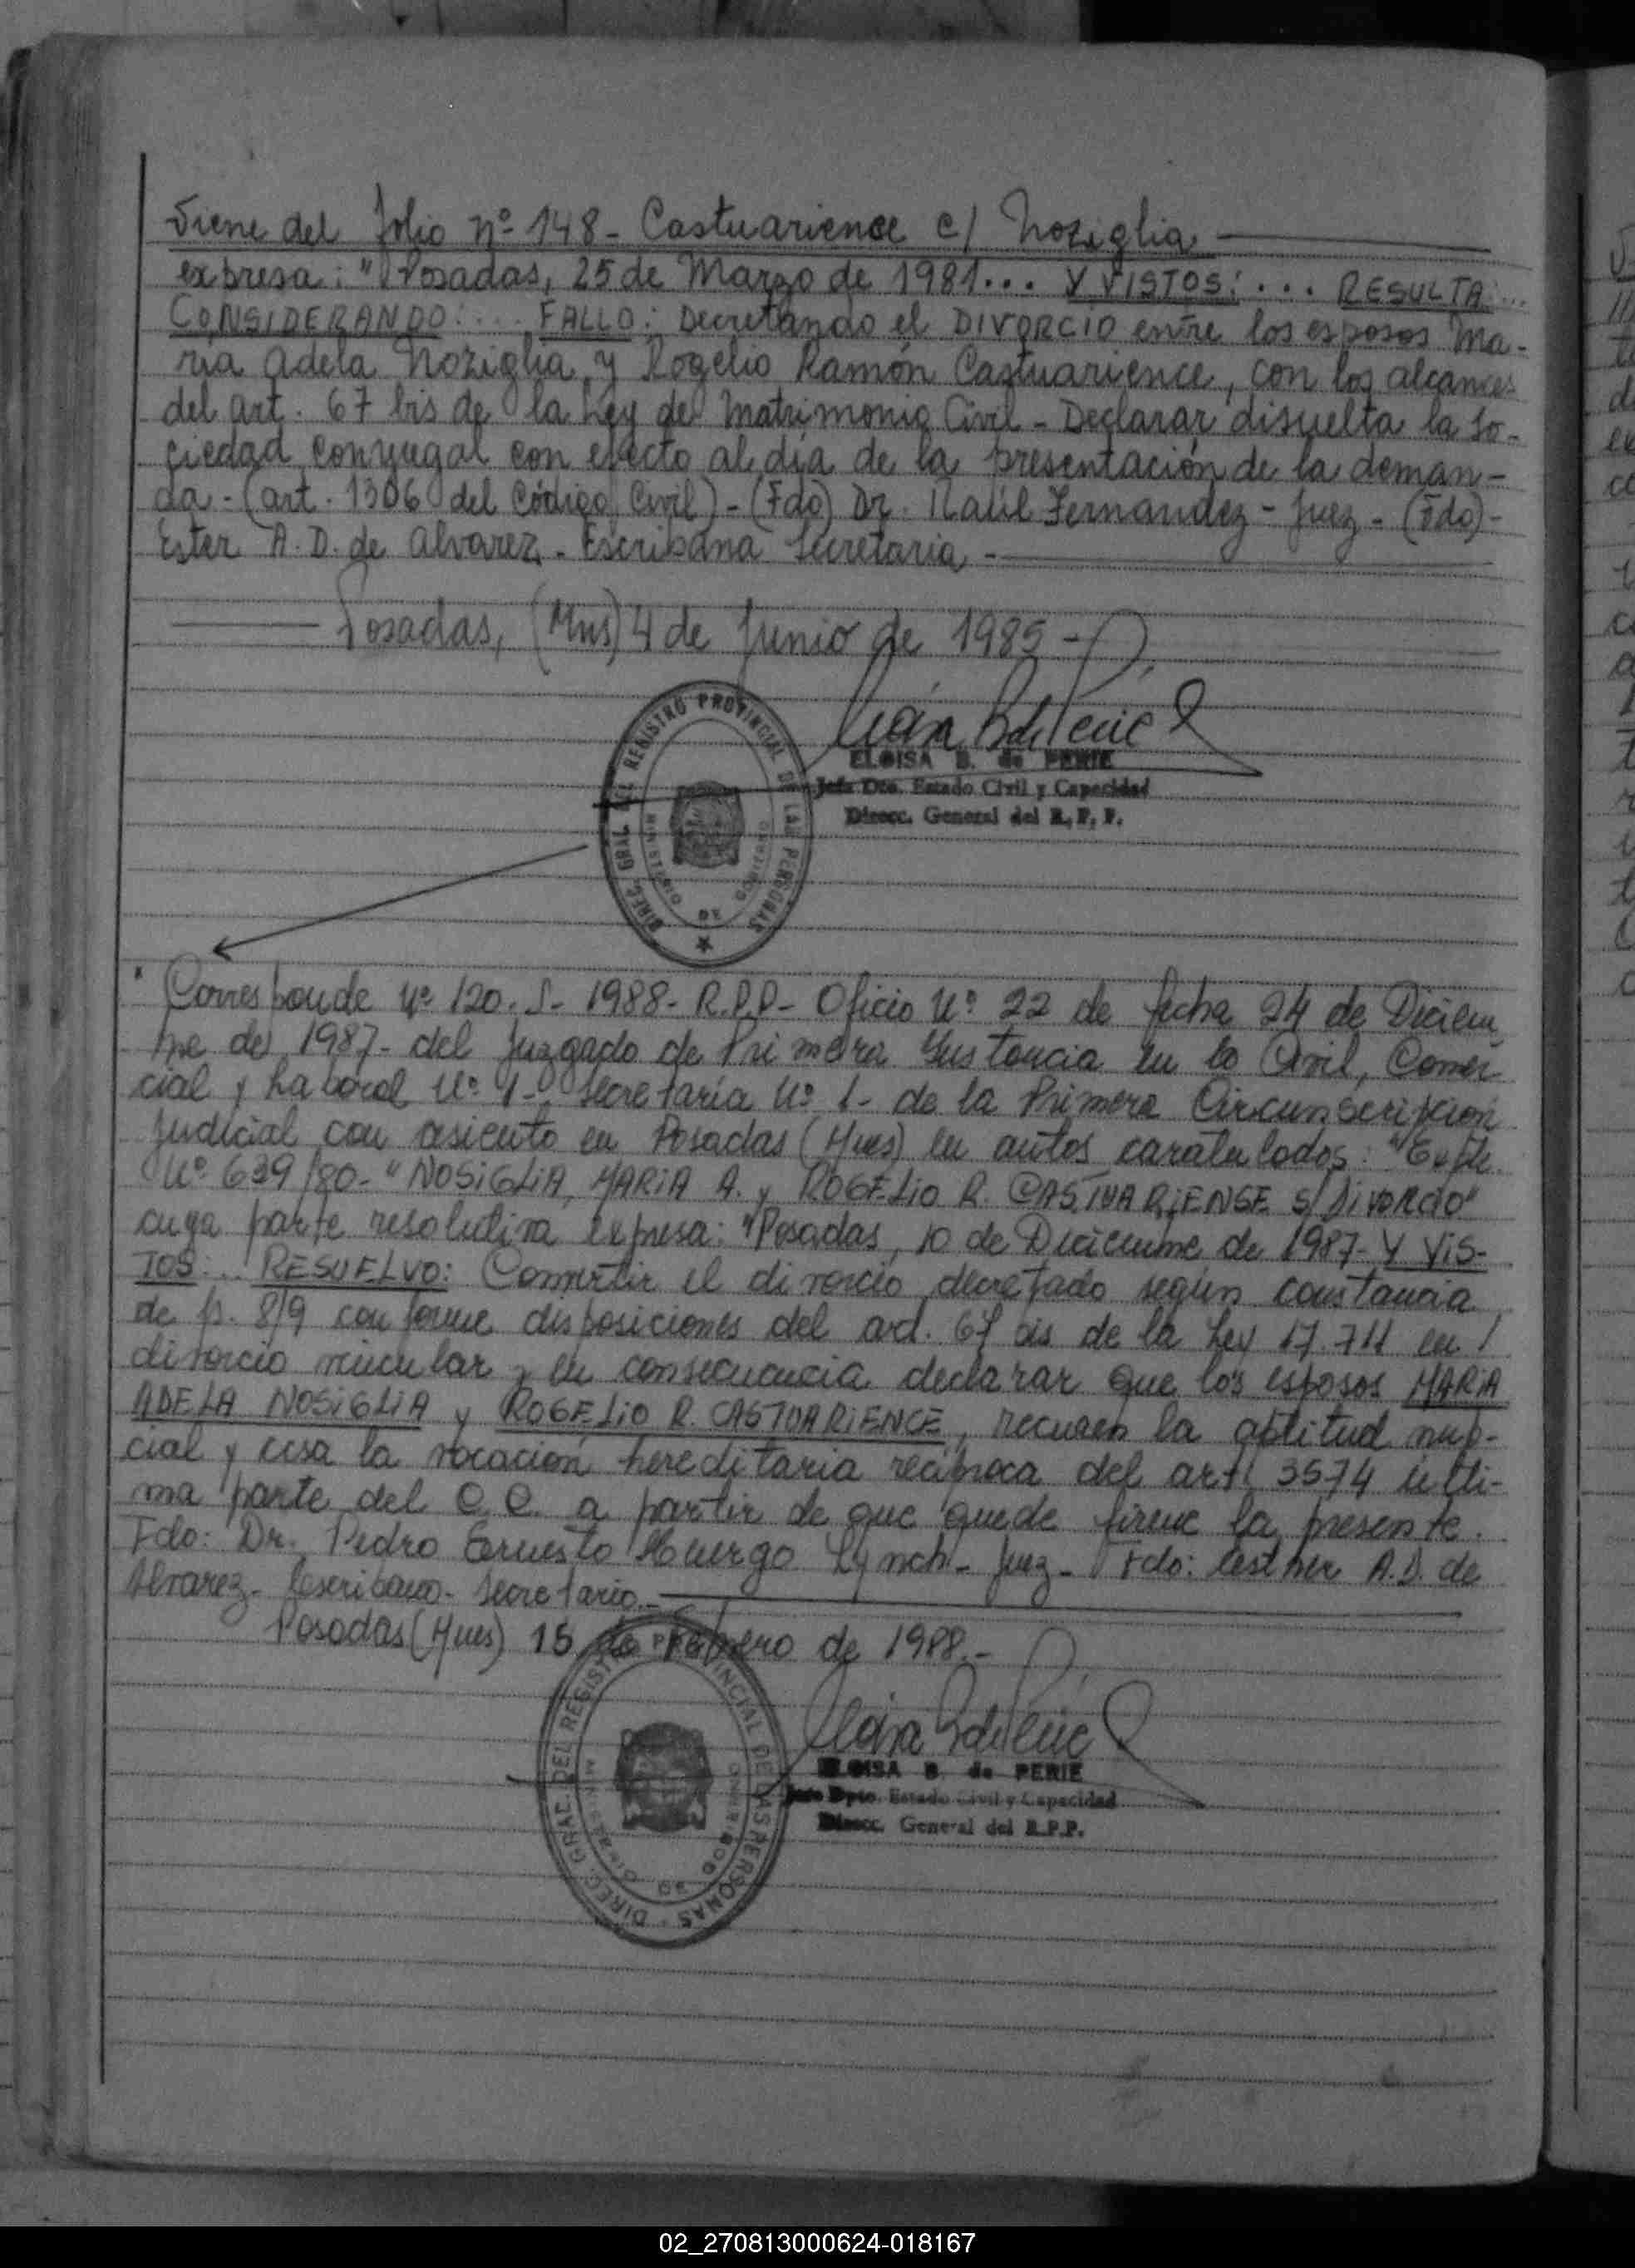 Viene del folio nº 148 - Castuarience c/ Noziglia
expresa: "Posadas, 25 de Marzo de 1981... Y VISTOS: ... RESULTA: ...
CONSIDERANDO: ... FALLO: Decretando el DIVORCIO entre los esposos Ma-
ría Adela Noziglia y Rogelio Ramón Castuarience, con los alcances
del art. 67 bis de la Ley de Matrimonio Civil - Declarar disuelta la so-
ciedad conyugal con efecto al día de la presentación de la deman-
da - (art. 1306 del Código Civil) - (Fdo) Dr. Raúl Fernandez - Juez - (Fdo) -
Ester A. D. de Alvarez - Escribana Secretaria -
Posadas, (Mns) 4 de Junio de 1985 -
DIREC. GRAL. DEL REGISTRO PROVINCIAL DE LAS PERSONAS
ELOISA B. de PERIE
Jefe Dto. Estado Civil y Capacidad
Direcc. General del R. P. P.
Corresponde Nº 120. S- 1988- R.P.P- Oficio Nº 22 de fecha 24 de Diciem
bre de 1987- del Juzgado de Primera Instancia en lo Civil, Comer
cial y Laboral Nº 1- Secretaría Nº 1- de la Primera Circunscripción
Judicial con asiento en Posadas (Mnes) en autos caratulados: "Expte.
Nº 639/80- "NOSIGLIA, MARIA A. y ROGELIO R. CASTUARIENSE S/ DIVORCIO"
cuya parte resolutiva expresa: "Posadas, 10 de Diciembre de 1987- Y VIS-
TOS: ... RESUELVO: Convertir el divorcio decretado según constancia
de fs. 8/9 conforme disposiciones del art. 67 bis de la Ley 17.711 en /
divorcio vincular y en consecuencia declarar que los esposos MARIA
ADELA NOSIGLIA y ROGELIO R. CASTUARIENCE, recuperan la aptitud nup-
cial y cesa la vocación hereditaria recíproca del art. 3574 últi-
ma parte del C.C. a partir de que quede firme la presente.
Fdo: Dr. Pedro Ernesto Huergo Lynch- Juez- Fdo: Esther A.D. de
Alvarez- Escribana- Secretaria.-
Posadas (Mnes) 15 de Febrero de 1988.-
DIREC. GRAL. DEL REGISTRO PROVINCIAL DE LAS PERSONAS
ELOISA B. de PERIE
Jefe Dpto. Estado Civil y Capacidad
Direcc. General del R.P.P.
02_270813000624-018167